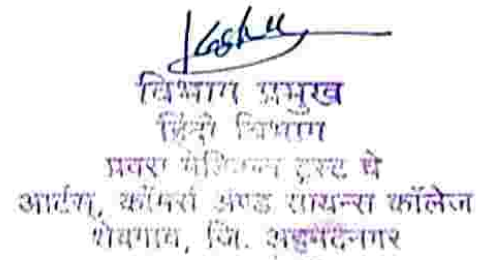 विभाग प्रमुख
हिंदी विभाग
प्रवरा मेडिकल ट्रस्ट चे
आर्टस्, कॉमर्स अ‍ॅण्ड सायन्स कॉलेज
शेवगाव, जि. अहमदनगर